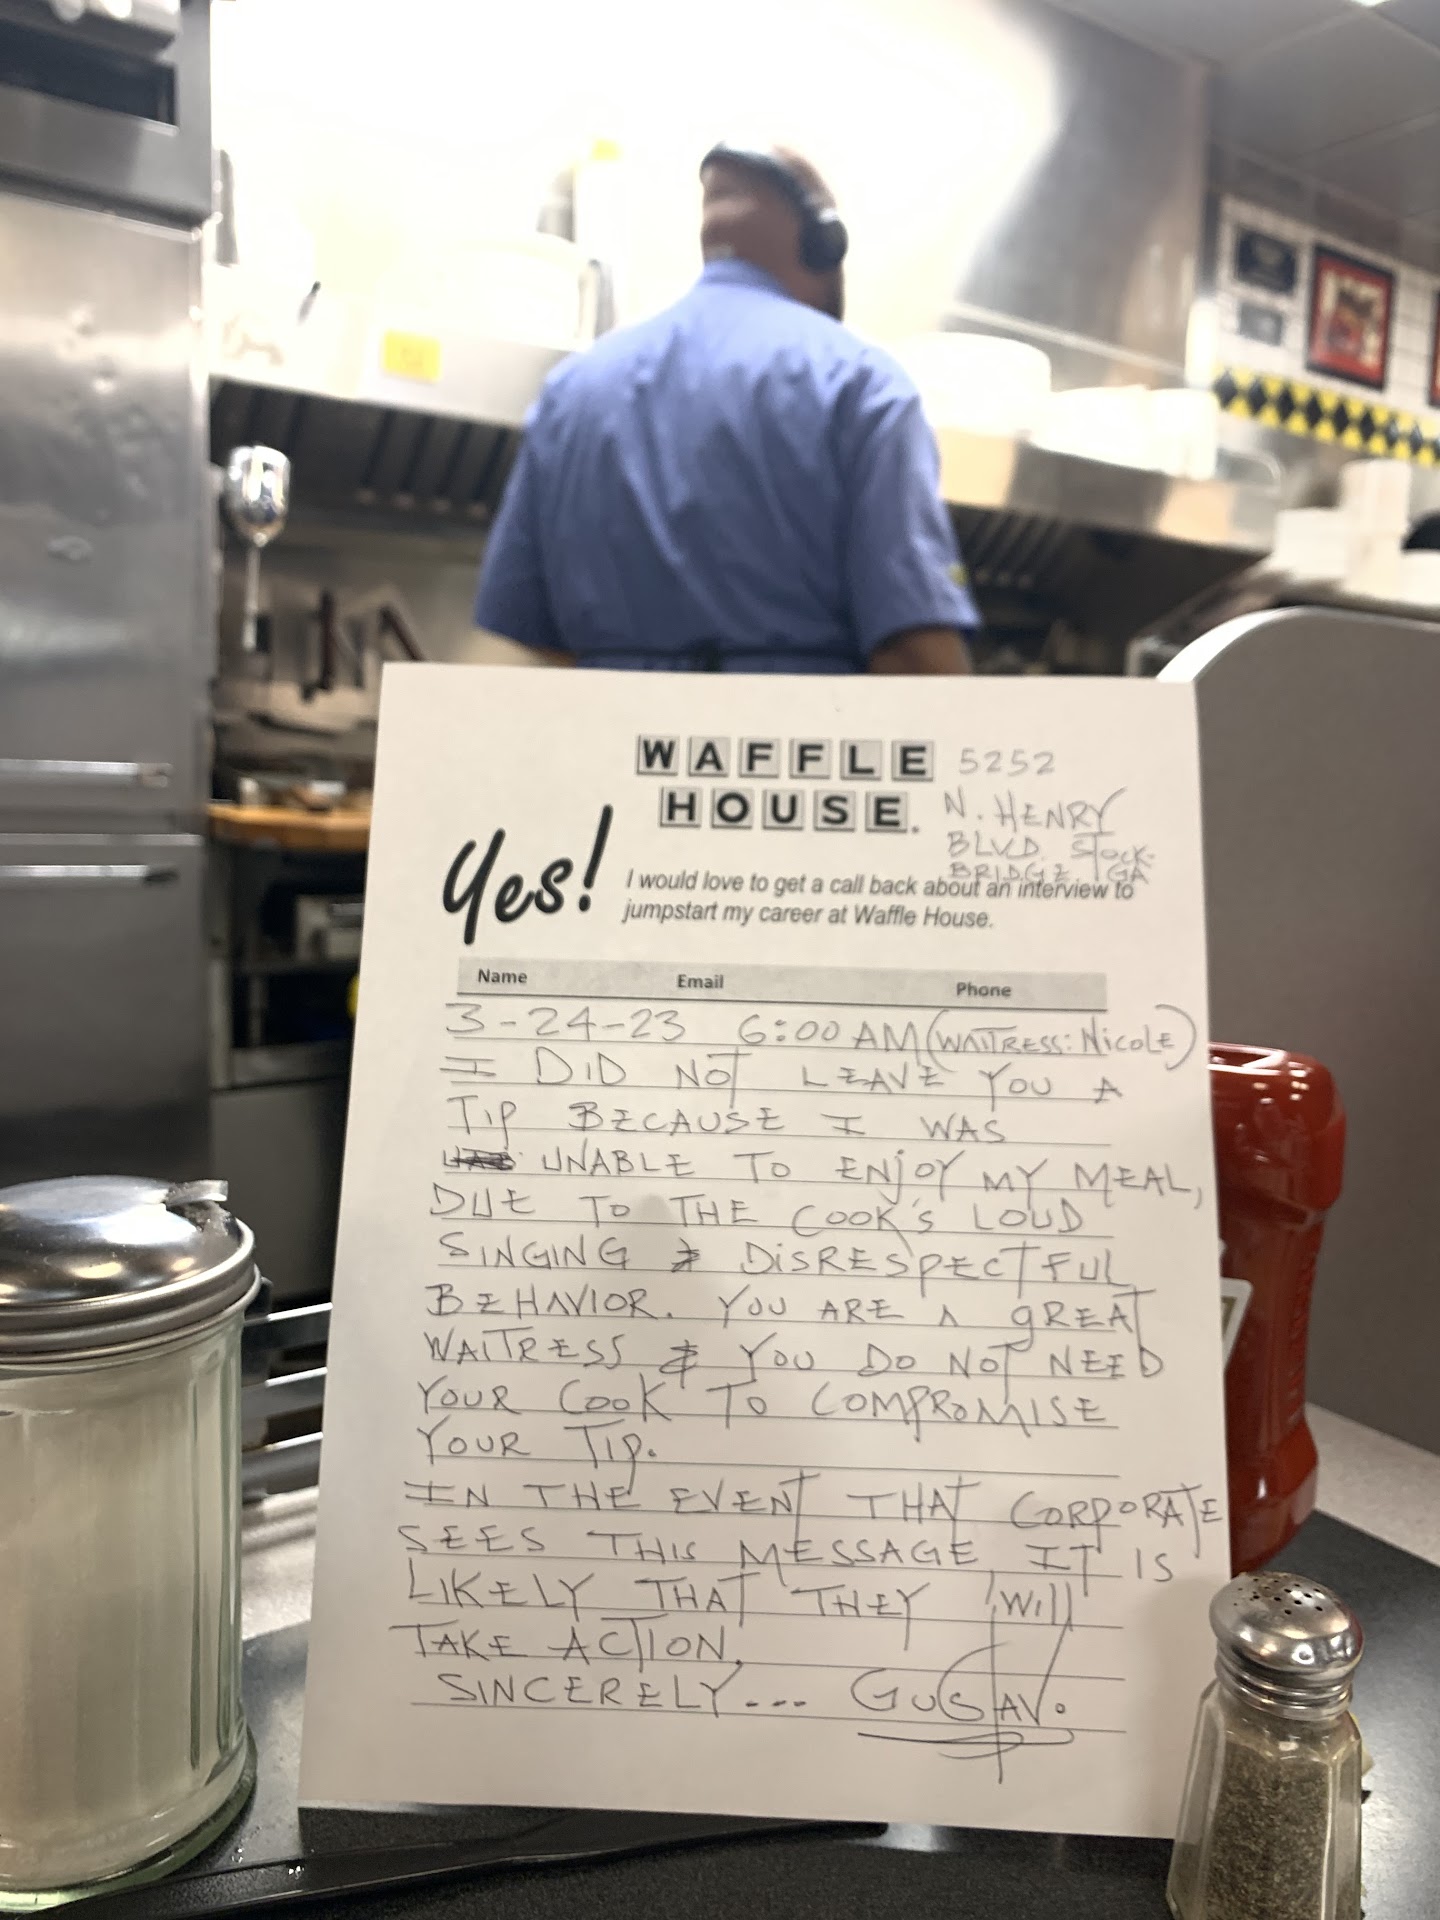 WAFFLE
HOUSE.
5252
N. HENRY
BLVD. STOCK-
BRIDGE GA
Yes!
I would love to get a call back about an interview to
jumpstart my career at Waffle House.
Name Email Phone
3-24-23 6:00 AM (WAITRESS: NICOLE)
I DID NOT LEAVE YOU A
TIP BECAUSE I WAS
UNABLE TO ENJOY MY MEAL,
DUE TO THE COOK'S LOUD
SINGING & DISRESPECTFUL
BEHAVIOR. YOU ARE A GREAT
WAITRESS & YOU DO NOT NEED
YOUR COOK TO COMPROMISE
YOUR TIP.
IN THE EVENT THAT CORPORATE
SEES THIS MESSAGE, IT IS
LIKELY THAT THEY WILL
TAKE ACTION.
SINCERELY... GUSTAV.